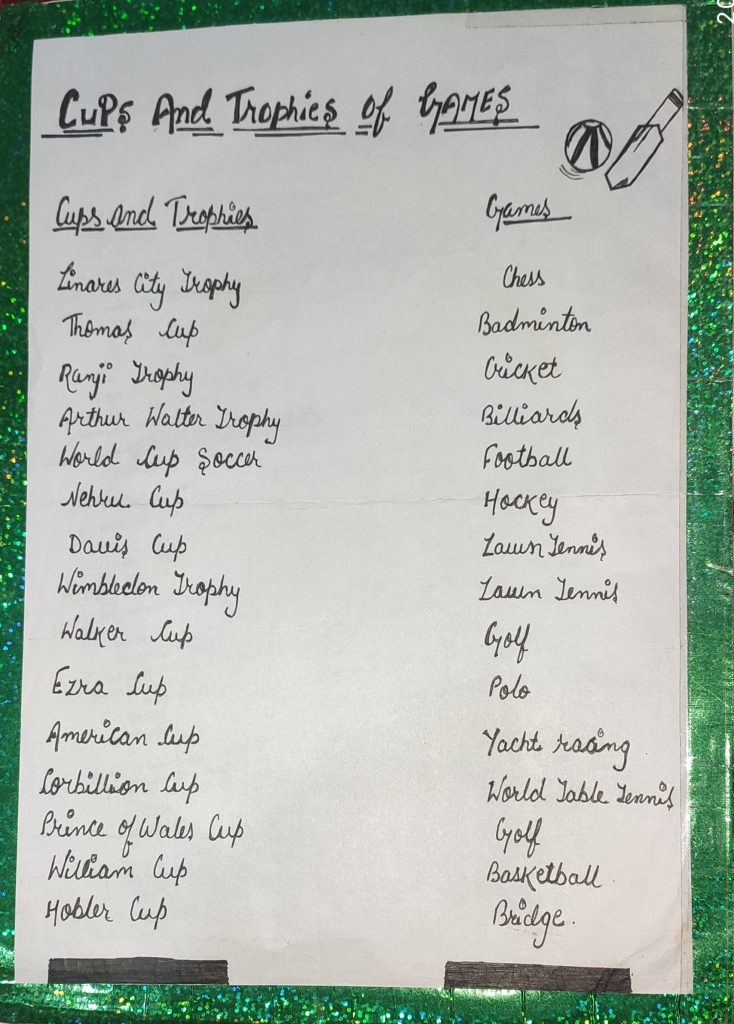 Cups And Trophies of Games
Cups and Trophies Games
Linares City Trophy Chess
Thomas Cup Badminton
Ranji Trophy Cricket
Arthur Walter Trophy Billiards
World Cup Soccer Football
Nehru Cup Hockey
Davis Cup Lawn Tennis
Wimbledon Trophy Lawn Tennis
Walker Cup Golf
Ezra Cup Polo
American Cup Yacht racing
Corbillion Cup World Table Tennis
Prince of Wales Cup Golf
William Cup Basketball
Hobler Cup Bridge.